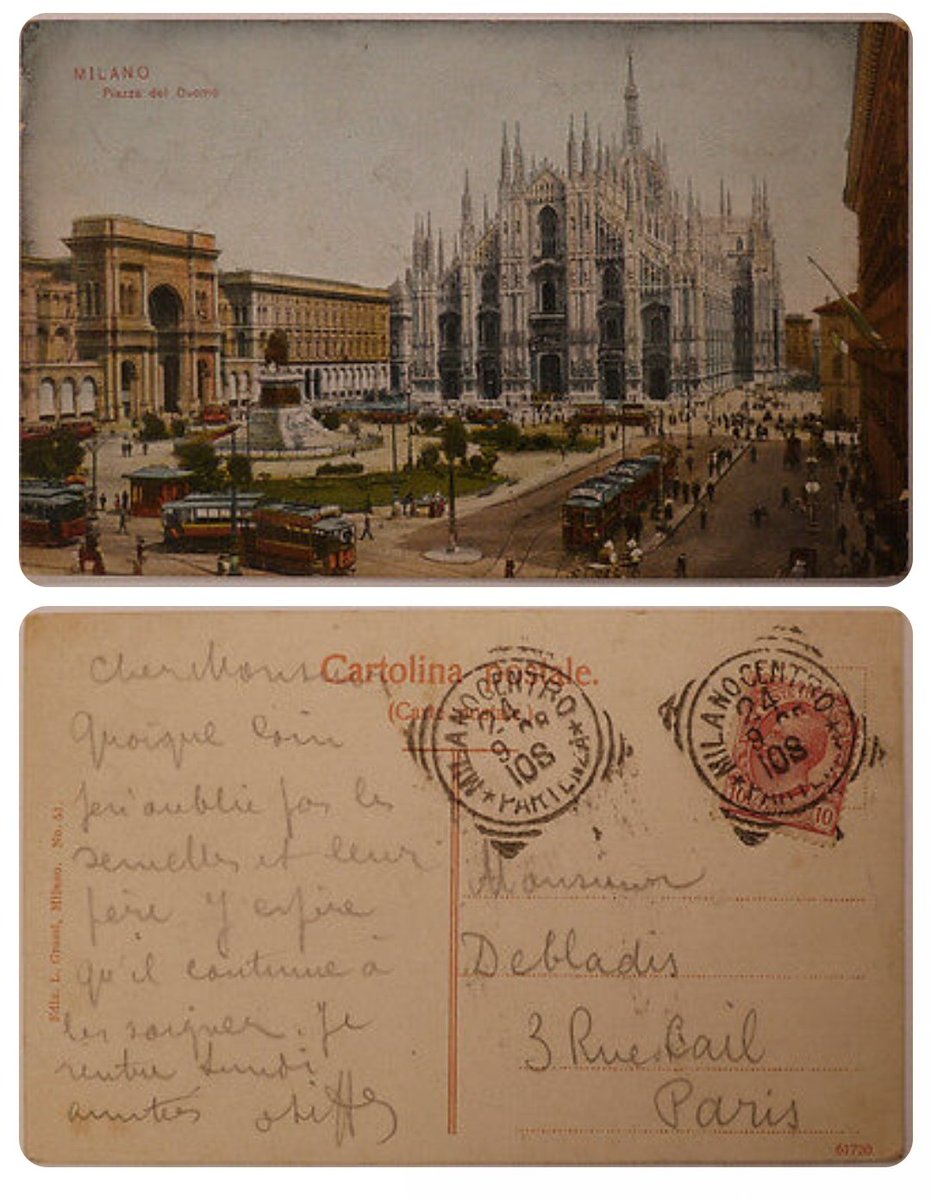 MILANO
Piazza del Duomo
Cartolina postale.
(Carte postale.)
Cher Monsieur
Quoique loin
je n'oublie pas les
semelles et leur
père J'espère
qu'il continue à
les soigner. Je
rentre Lundi
amitiés
Ediz. L. Grassi, Milano. No. 51
MILANO CENTRO
24
9
108
PARTENZA
MILANO CENTRO
24
9
108
PARTENZA
10
Monsieur
Debladis
3 Rue Bail
Paris
61720